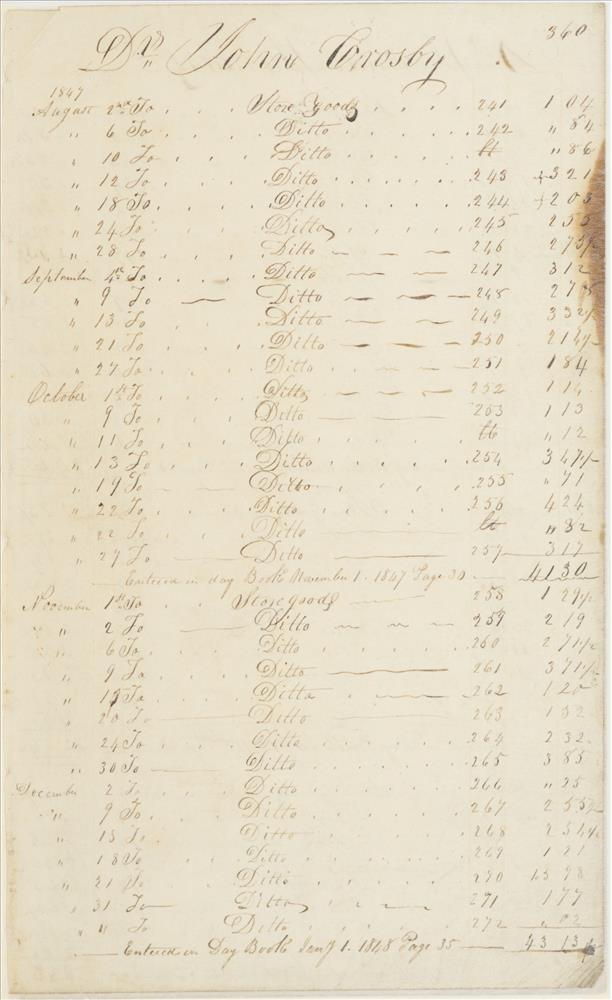 360
Dr. John Crosby
1847
August 2nd To . . . Store goods . . . 241 1 04
" 6 To . . . Ditto . . . 242 " 84
" 10 To . . . Ditto . . . tt " 86
" 12 To . . . Ditto . . . 243 +3 21
" 18 To . . . Ditto . . . 244 +2 03
" 24 To . . . Ditto . . . 245 2 55
" 28 To . . . Ditto — — — 246 2 75½
September 4th To . . . Ditto — — — 247 3 12
" 9 To — Ditto — — — 248 2 78
" 13 To . . . Ditto — — — 249 3 32½
" 21 To . . . Ditto — — — 250 2 14½
" 27 To . . . Ditto . — — 251 1 84
October 1st To . . . Ditto — — — 252 1 14
" 9 To . . . Ditto — 253 1 13
" 11 To . . . Ditto . . . tt " 12
" 13 To . . . Ditto . . . 254 3 47½
" 19 To — Ditto . . . 255 " 71
" 22 To . . . Ditto . . . 256 4 24
" 22 To . . . Ditto — tt " 32
" 27 To — Ditto — 257 3 17
— Entered in day Book November 1. 1847 Page 30 — 41 30
November 1st To . . Store goods — 258 1 29½
" 2 To — Ditto — — — 259 2 19
" 6 To . . . Ditto . . . 260 2 71½
" 9 To . . . Ditto — 261 3 71½
" 15 To . . . Ditto . — 262 1 20
" 20 To — Ditto — 263 1 32
" 24 To . . . Ditto . . . 264 2 32
" 30 To — Ditto . . . 265 3 85
December 2 To . . . Ditto . . . 266 " 25
" 9 To . . . Ditto . . . 267 2 55½
" 15 To . . . Ditto . . . 268 2 54½
" 18 To . . . Ditto . . . 269 1 21
" 21 To . . . Ditto . . . 270 15 98
" 31 To — Ditto . — — 271 1 77
" " To . . . Ditto . . . 272 " 02
— Entered in Day Book Jany 1. 1848 Page 35 — 43 13½